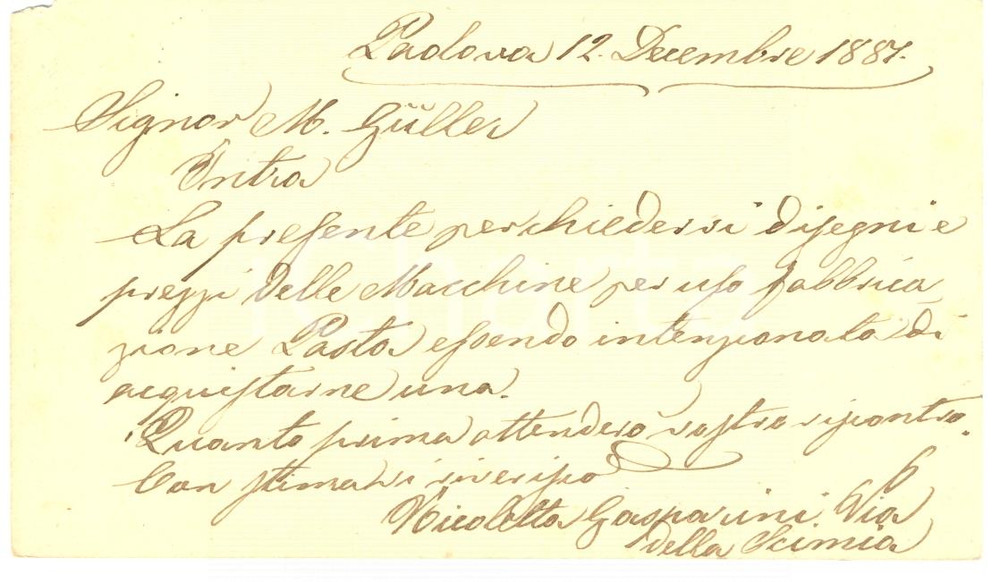 Padova 12. Decembre 1887.
Signor M. Güller
Intra
La presente per chiedervi disegni e
prezzi delle Macchine per uso fabbrica
zione Pasta essendo intenzionata di
acquistarne una.
Quanto prima attenderò vostro riscontro.
Con stima vi riverisco
Nicoletta Gasparini. Via
della Scimia